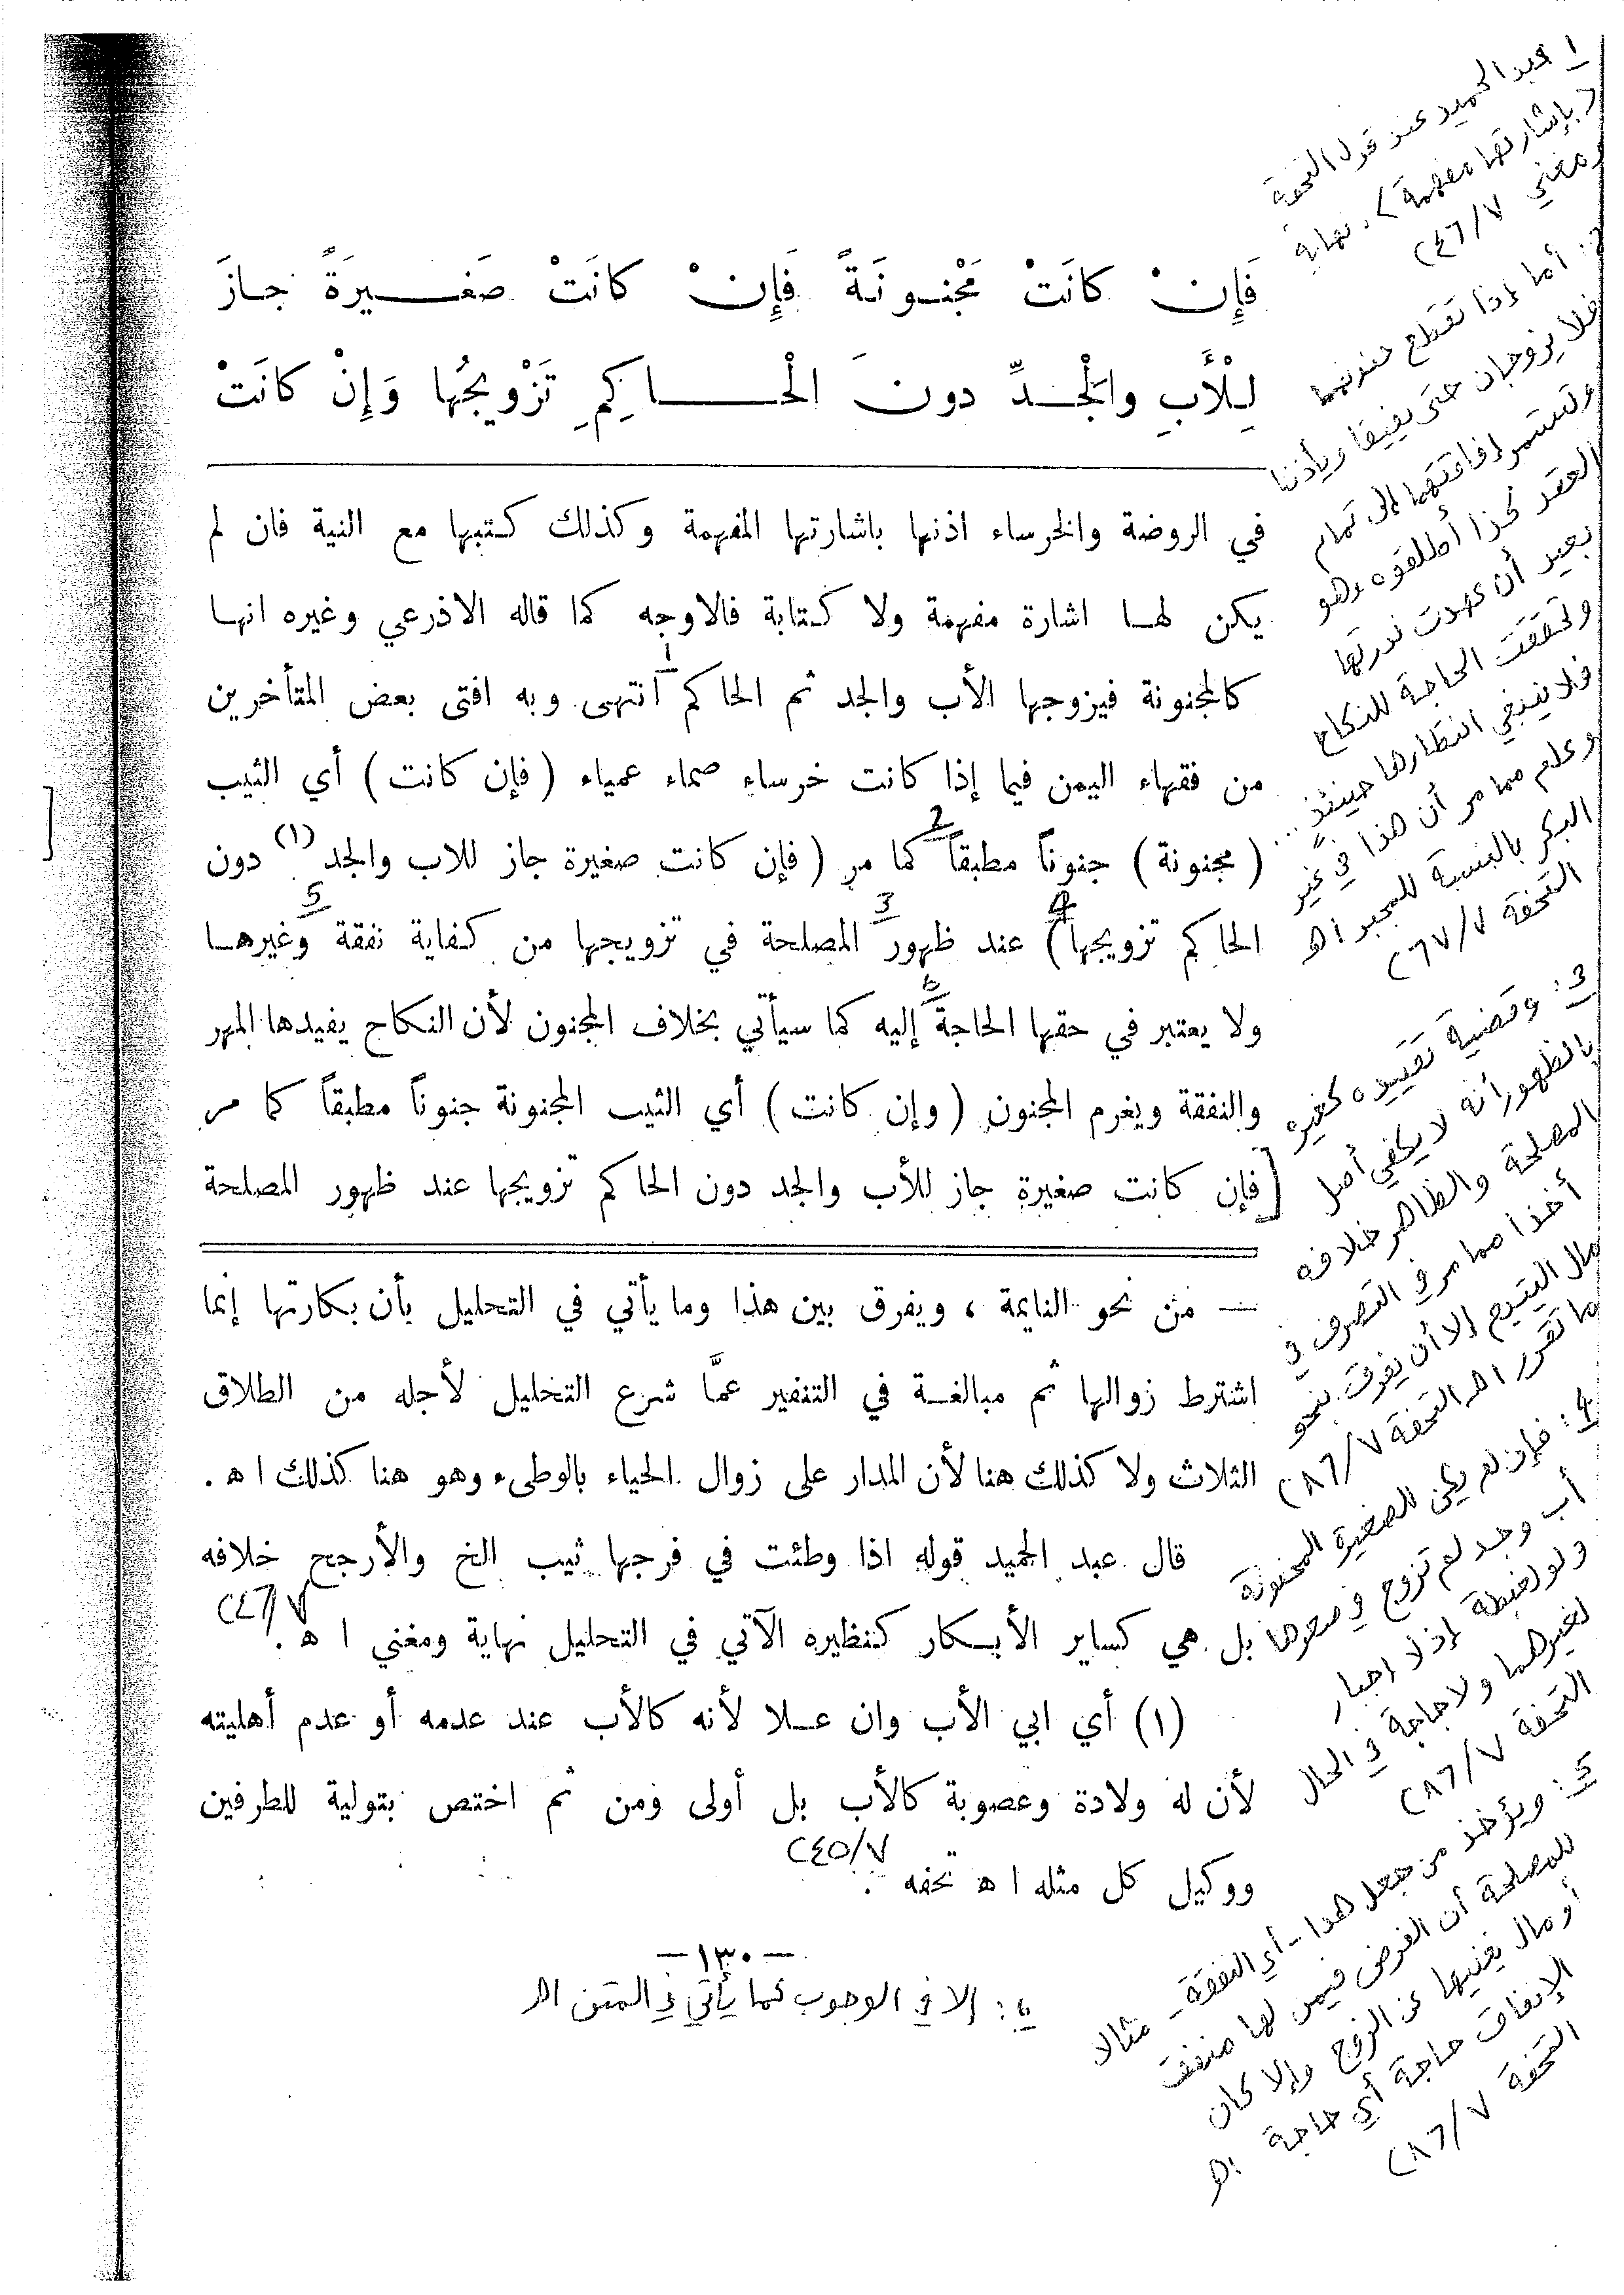 فَإِنْ كانَتْ مَجْنونَةً فَإِنْ كانَتْ صَغيرَةً جازَ
لِلْأَبِ والْجَدِّ دونَ الْحاكِمِ تَزْويجُها وَإِنْ كانَتْ
في الروضة والخرساء اذنها باشارتها المفهمة وكذلك كتبها مع النية فان لم
يكن لها اشارة مفهمة ولا كتابة فالاوجه كما قاله الاذرعي وغيره انها
كالمجنونة فيزوجها الأب والجد ثم الحاكم 1 انتهى وبه افتى بعض المتأخرين
من فقهاء اليمن فيما إذا كانت خرساء صماء عمياء (فإن كانت) أي الثيب
(مجنونة) جنوناً مطبقاً 2 كما مر (فإن كانت صغيرة جاز للاب والجد (١) دون
الحاكم تزويجها) 4 عند ظهور 3 المصلحة في تزويجها من كفاية نفقة 5 وغيرها
ولا يعتبر في حقها الحاجة 6 إليه كما سيأتي بخلاف المجنون لأن النكاح يفيدها المهر
والنفقة ويغرم المجنون (وإن كانت) أي الثيب المجنونة جنوناً مطبقاً كما مر
[فإن كانت صغيرة جاز للأب والجد دون الحاكم تزويجها عند ظهور المصلحة
— من نحو النايمة ، ويفرق بين هذا وما يأتي في التحليل بأن بكارتها إنما
اشترط زوالها ثم مبالغة في التنفير عمَّا شرع التحليل لأجله من الطلاق
الثلاث ولا كذلك هنا لأن المدار على زوال الحياء بالوطىء وهو هنا كذلك ا ه .
قال عبد الحميد قوله اذا وطئت في فرجها ثيب الخ والأرجح خلافه
بل هي كساير الأبكار كنظيره الآتي في التحليل نهاية ومغني ا ه . ٧/٢٤٦
(١) أي ابي الأب وان علا لأنه كالأب عند عدمه أو عدم أهليته
لأن له ولادة وعصوبة كالأب بل أولى ومن ثم اختص بتولية للطرفين
ووكيل كل مثله ا ه تحفه . ٧/٢٤٥
— ١٣٠ —
6 : إلا في الوجوب كما يأتي في المتن اهـ
1 عبد الحميد عند قول التحفة
(بإشارتها مفهمة) . نهاية
ومغني ٧/٢٤٦
2: أما إذا تقطع جنونهما
فلا يزوجان حتى يفيقا ويأذنا
وتستمر إفاقتهما إلى تمام
العقد كذا أطلقوه وهو
بعيد أن عهدت ندرتها
وتحققت الحاجة للنكاح
فلا ينبغي انتظارها حينئذ ..
وعلم مما مر أن هذا في غير
البكر بالنسبة للمجبر اهـ
التحفة ٧/٢٦٧
3: وقضية تقييده كغيره
بالظهور أنه لا يكفي أصل
المصلحة والظاهر خلافه
أخذا مما مر في التصرف في
مال اليتيم إلا أن يفرق بنحو
ما تقرر اهـ التحفة ٧/٢٦٨
4: فإن لم يكن للصغيرة المجنونة
أب وجد لم تزوج في صغرها
ولو لغبطة إذ لا إجبار
لغيرهما ولا حاجة في الحال
التحفة ٧/٢٦٨
5: ويؤخذ من جعل هذا - أي النفقة - مثالا
للمصلحة أن الفرض فيمن لها منفق
أو مال يغنيها عن الزوج وإلا كان
الإنفاق حاجة أي حاجة اهـ
التحفة ٧/٢٦٨